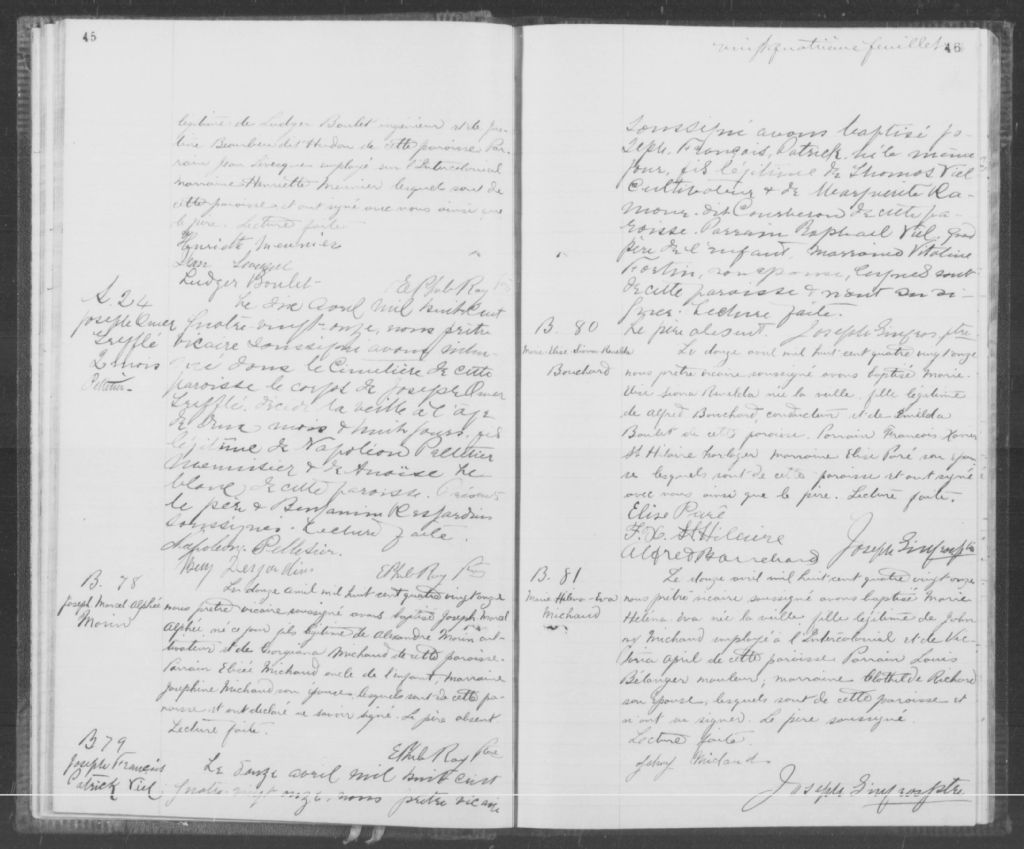 45
légitime de Ludger Boulet ingénieur et de Jus-
tine Beaubien dit Haudon de cette paroisse Par-
rain Jean Levesque employé sur l'Intercolonial
marraine Henriette Meunier lesquels sont de
cette paroisse et ont signé avec nous ainsi que
le père. Lecture faite
Henriette Meunier
Jean
Ludger Boulet
Ephb Roy Ptre
S 24
Joseph Omer
Griffié
2 mois
Pelletier
Le dix avril mil huit cent
quatre-vingt-onze, nous prêtre
vicaire soussigné avons inhu-
mé dans le Cimetière de cette
paroisse le corps de Joseph Omer
décédé la veille à l'age
de deux mois & huit jours, fils
légitime de Napoléon Pelletier
Menuisier & de Anaïse Le
blanc de cette paroisse. Présents
le père & Benjamin Desjardins
soussignés. Lecture faite.
Napoléon Pelletier.
Benj Desjardins
Ephb Roy Ptre
B. 78
Joseph Marcel Alphée
Morin
Le douze avril mil huit cent quatre vingt onze
nous prêtre vicaire soussigné avons baptisé Joseph Marcel
Alphée, né ce jour fils légitime de Alexandre Morin cul-
tivateur et de Georgiana Michaud de cette paroisse.
Parrain Elisée Michaud oncle de l'enfant, marraine
Josephine Michaud son épouse, lesquels sont de cette pa-
roisse et ont déclaré ne savoir signé. Le père absent
Lecture faite.
Ephb Roy Ptre
B 79
Joseph François
Patrick Viel
Le douze avril mil huit cent
quatre-vingt onze, nous prêtre vicaire
vingt quatrième feuillet
46
Soussigné avons baptisé Jo-
seph. François, Patrick né le même
jour, fils légitime de Thomas Viel
Cultivateur & de Marguerite Ra-
mone dit Courberon de cette pa-
roisse. Parrain Raphael Viel, grand
père de l'enfant, marraine Vitaline
Fortin, son épouse, lesquels sont
de cette paroisse & n'ont su si-
gner. Lecture faite.
Le père absent. Joseph ptre
B. 80
Marie Elise
Bouchard
Le douze avril mil huit cent quatre vingt onze
nous prêtre vicaire soussigné avons baptisé Marie-
née la veille, fille légitime
de Alfred Bouchard, conducteur et de Emilda
Boulet de cette paroisse. Parrain François Xavier
St Hilaire horloger marraine Elise Paré son épou-
se lesquels sont de cette paroisse et ont signé
avec nous ainsi que le père. Lecture faite.
Elise Paré
F. X. St Hilaire
Alfred Bouchard
Joseph ptre
B. 81
Marie Helena-Eva
Michaud
Le douze avril mil huit cent quatre vingt onze
nous prêtre vicaire soussigné avons baptisé Marie
Helena-Eva née la veille, fille légitime de John-
ny Michaud employé à l'Intercolonial et de Vic-
toria April de cette paroisse Parrain Louis
Bélanger mouleur, marraine Clothilde Richard
son épouse, lesquels sont de cette paroisse et
n'ont su signer. Le père soussigné.
Lecture faite.
Johny Michaud
Joseph ptre